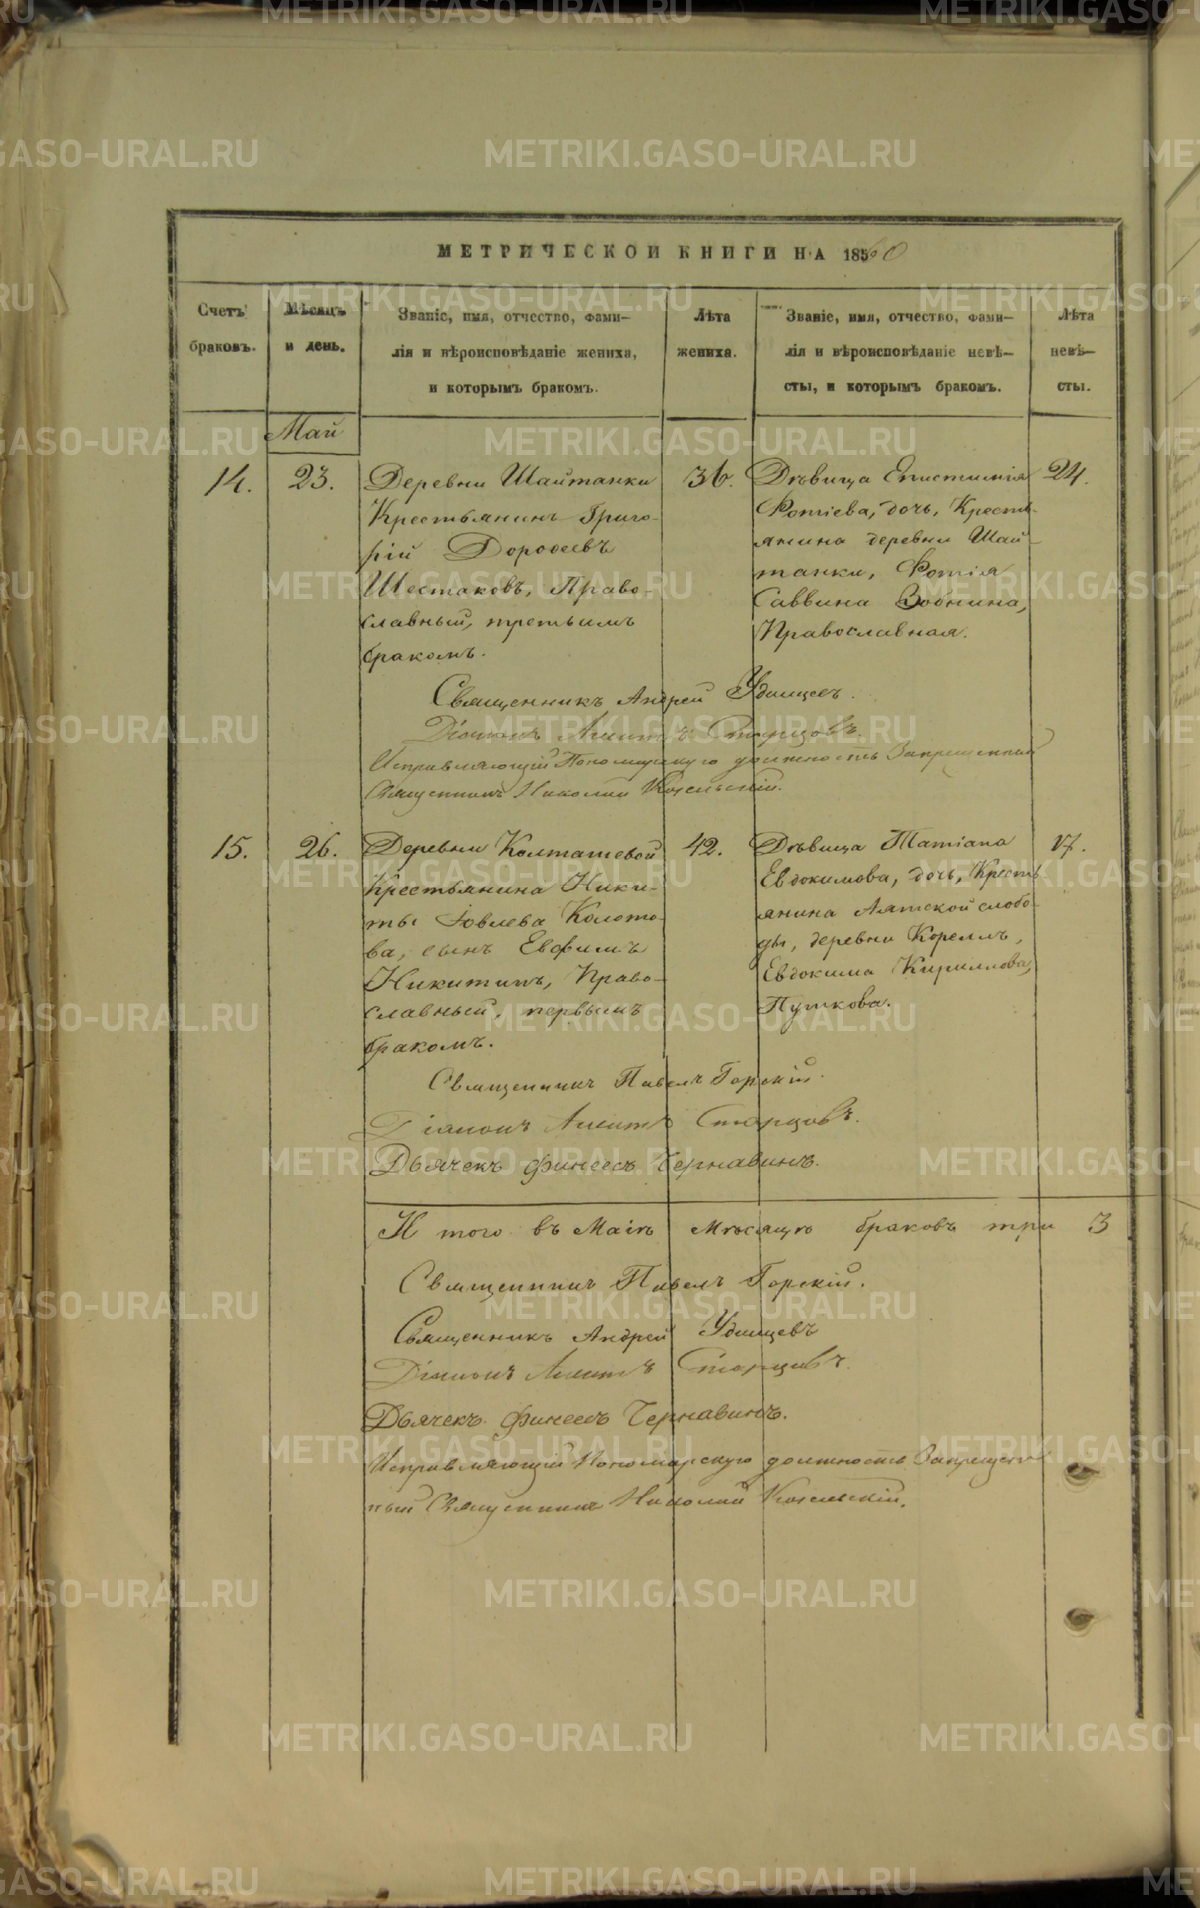 МЕТРИЧЕСКОЙ КНИГИ НА 1860
Счетъ браковъ.
Мѣсяцъ и день.
Званіе, имя, отчество, фами-
лія и вѣроисповѣданіе жениха,
и которымъ бракомъ.
Лѣта
жениха.
Званіе, имя, отчество, фами-
лія и вѣроисповѣданіе невѣ-
сты, и которымъ бракомъ.
Лѣта
невѣ-
сты.
Май
14.
23.
Деревни Шайтанки
Крестьянинъ Григо-
рій Дороѳеевъ
Шестаковъ, Право-
славный, третьимъ
бракомъ.
36.
Дѣвица Епистимія
Фотіева, дочь, Кресть-
янина деревни Шай-
танки, Фотія
Саввина Зобнина,
Православная.
24.
Священникъ Андрей Удинцевъ.
Діаконъ Старцовъ.
Исправляющій Пономарскую должность Запрещенный
Священникъ Николай Козельскій.
15.
26.
Деревни Колташевой
Крестьянина Ники-
ты Іовлева Колото-
ва, сынъ Евфимъ
Никитинъ, Право-
славный, первымъ
бракомъ.
42.
Дѣвица Татіана
Евдокимова, дочь, Кресть-
янина Аятской слобо-
ды, деревни Корелъ,
Евдокима Кириллова,
Путкова.
17.
Священникъ Павелъ Горскій.
Діаконъ Старцовъ.
Дьячекъ Финеесъ Чернавинъ.
И того въ Маіѣ Мѣсяцѣ браковъ три 3
Священникъ Павелъ Горскій.
Священникъ Андрей Удинцевъ
Діаконъ Старцовъ.
Дьячекъ Финеесъ Чернавинъ.
Исправляющій Пономарскую должность Запрещен-
ный Священникъ Николай Козельскій.
METRIKI.GASO-URAL.RU